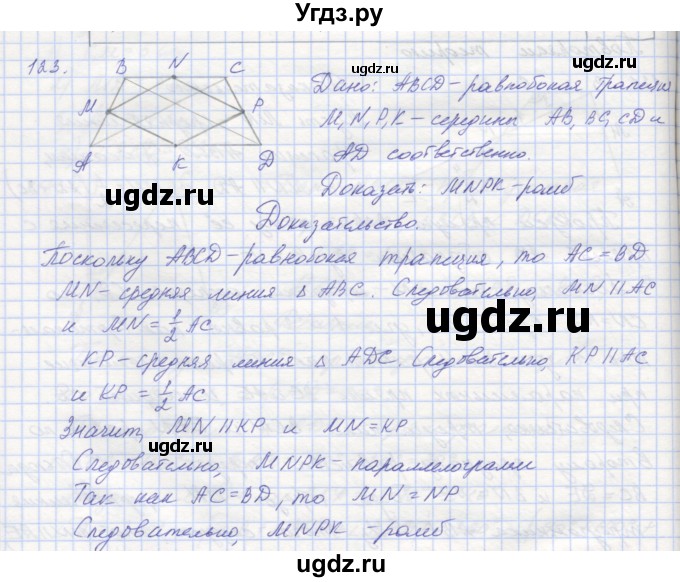 Угдз.ру
123.
B N C
M P
A K D
Дано: ABCD-равнобокая трапеция
M, N, P, K - середины AB, BC, CD и
AD соответственно.
Доказать: MNPK-ромб
Доказательство.
Поскольку ABCD-равнобокая трапеция, то AC=BD
MN-средняя линия △ ABC. Следовательно, MN || AC
и MN = 1/2 AC
KP-средняя линия △ ADC. Следовательно, KP || AC
и KP = 1/2 AC
Значит, MN || KP и MN=KP
Следовательно, MNPK-параллелограмм
Так как AC=BD, то MN=NP
Следовательно, MNPK -ромб
ugdz.ru
ugdz.ru
ugdz.ru
ugdz.ru
ugdz.ru
ugdz.ru
ugdz.ru
ugdz.ru
Угдз.ру